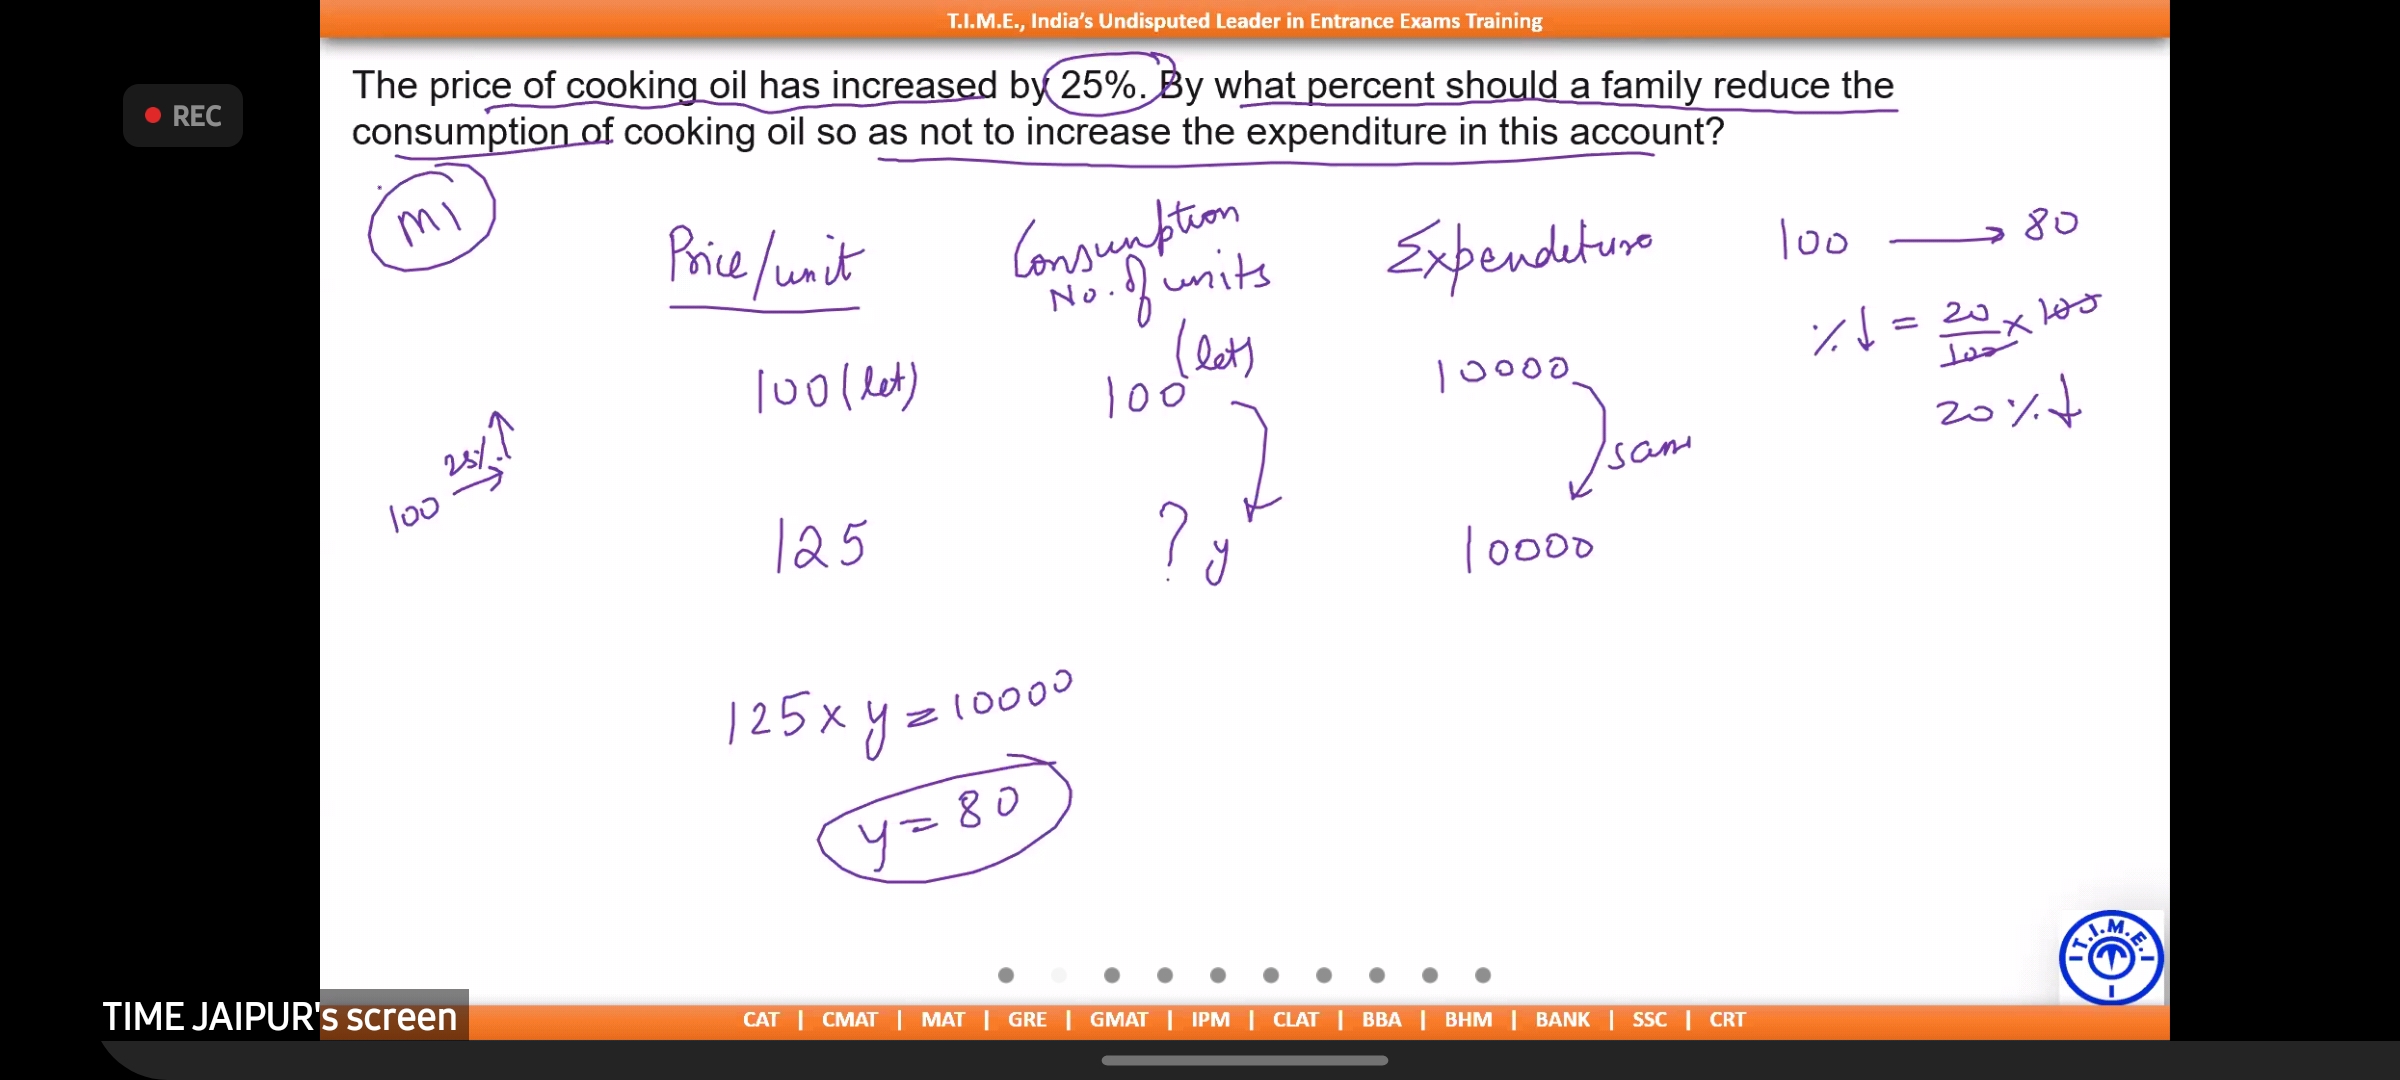 T.I.M.E., India's Undisputed Leader in Entrance Exams Training
REC
The price of cooking oil has increased by 25%. By what percent should a family reduce the
consumption of cooking oil so as not to increase the expenditure in this account?
M1
Price/unit
Consumption
No. of units
Expenditure
100 → 80
%↓ = 20/100 × 100
20%↓
100 (let)
100 (let)
10000
same
100 25%↑
125
? y
10000
125 × y = 10000
y = 80
T.I.M.E.
TIME JAIPUR's screen
CAT | CMAT | MAT | GRE | GMAT | IPM | CLAT | BBA | BHM | BANK | SSC | CRT